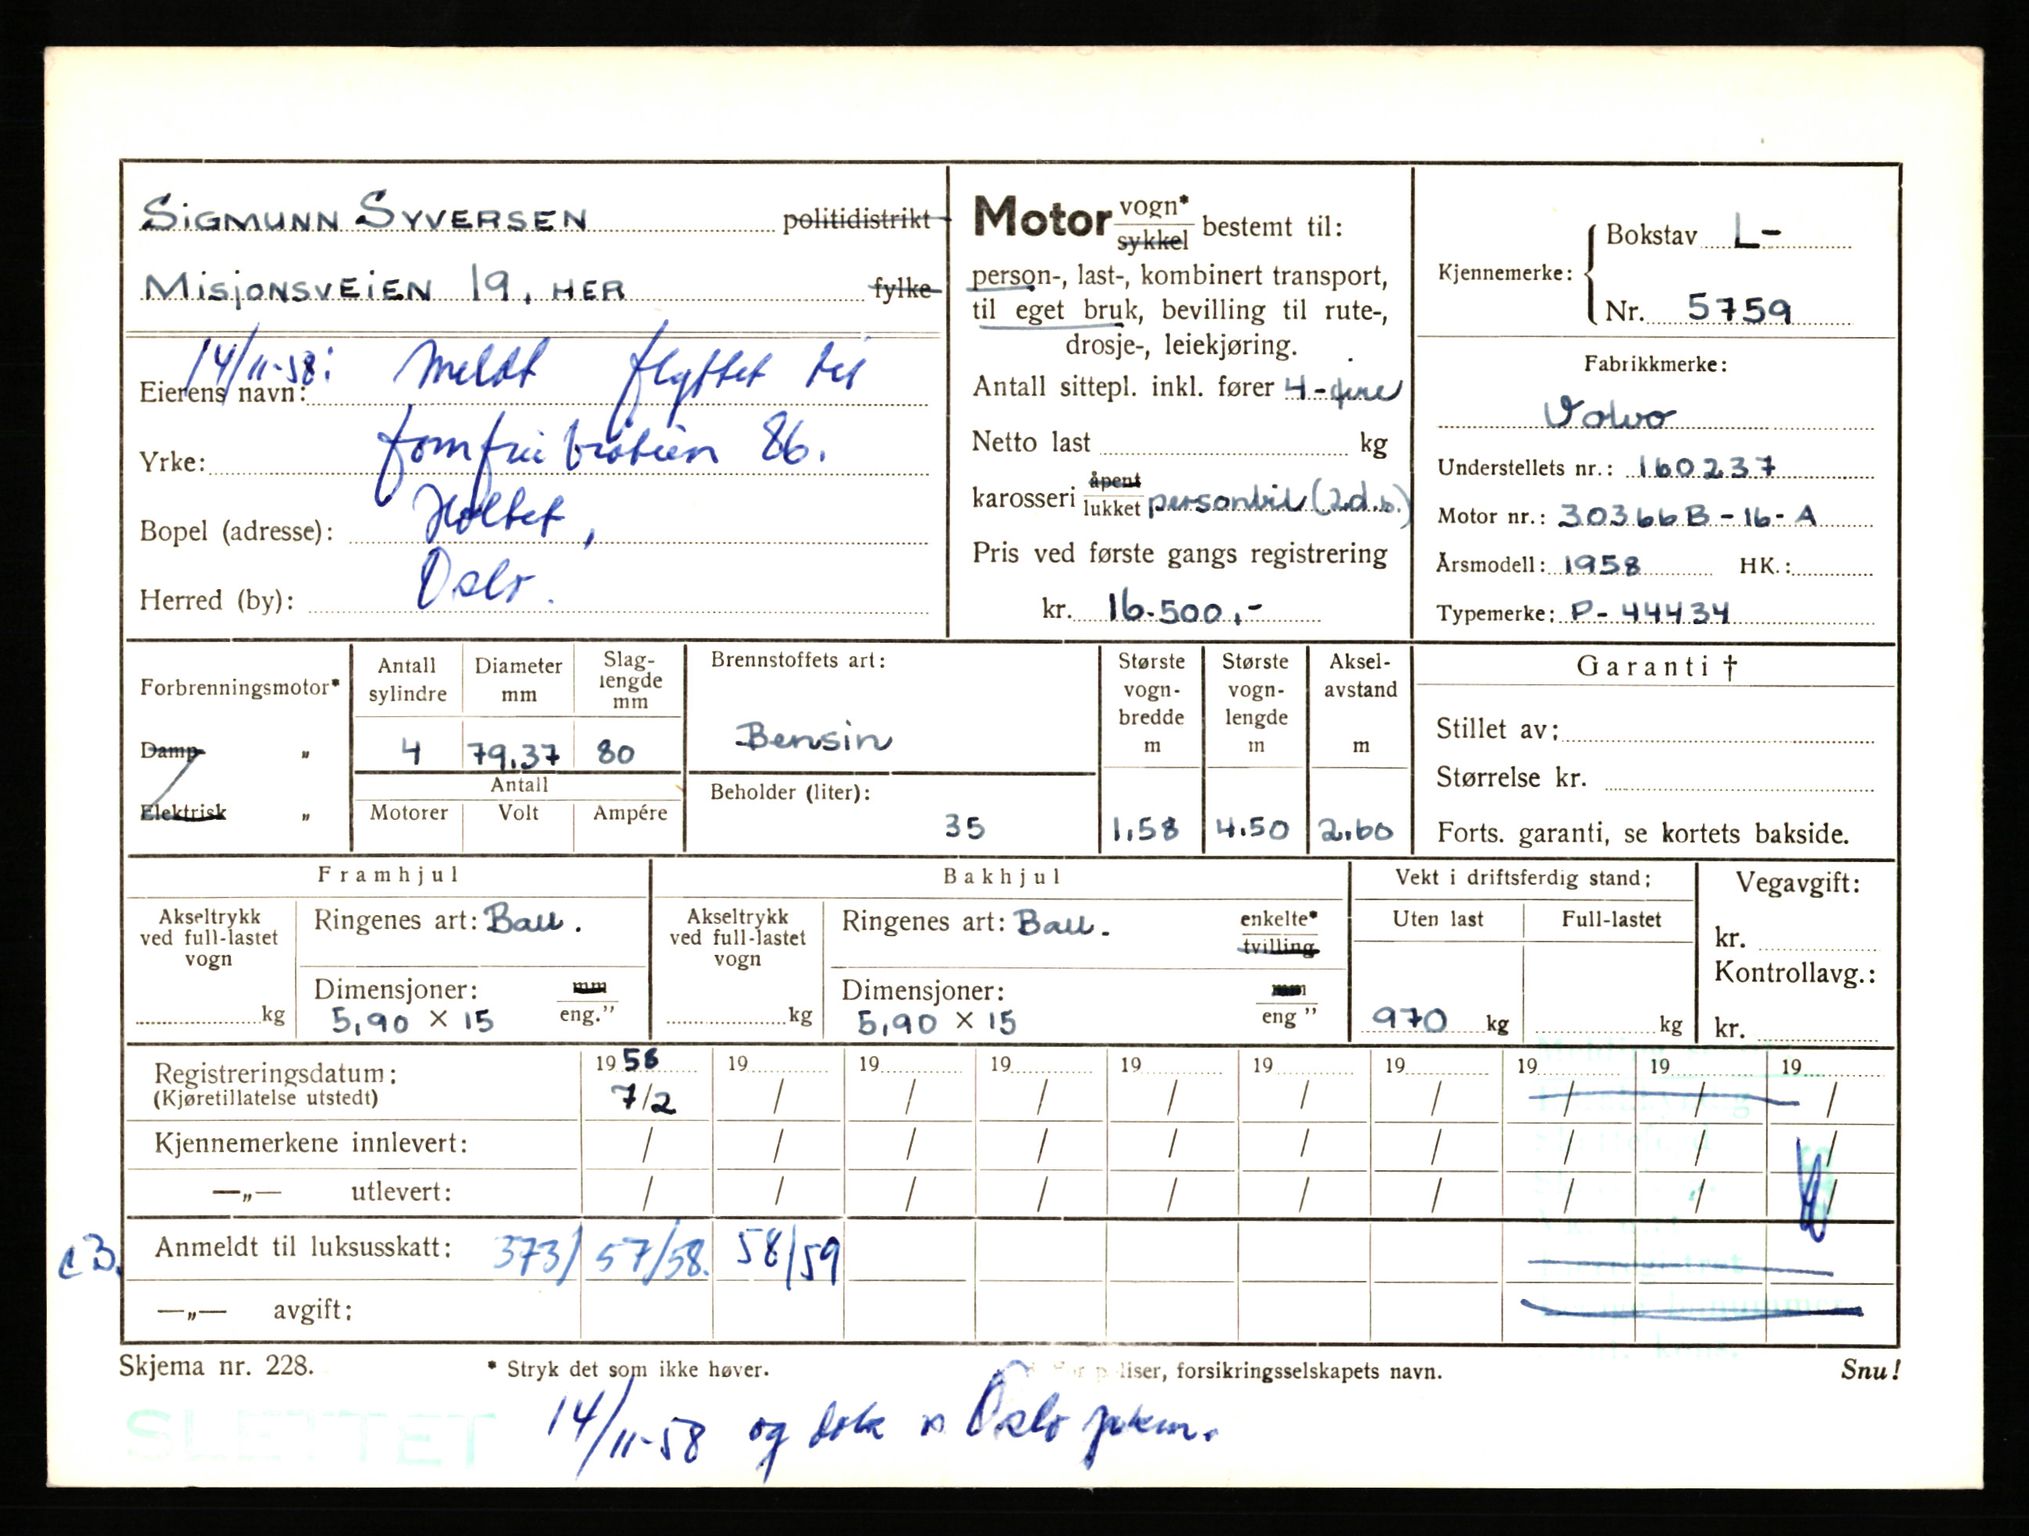 SIGMUNN SYVERSEN politidistrikt
MISJONSVEIEN 19, HER fylke
14/11-58: Meldt flyttet til
Eierens navn:
Yrke: 86.
Bopel (adresse): Holtet,
Herred (by): Oslo.
Motor vogn* sykkel bestemt til:
person-, last-, kombinert transport,
til eget bruk, bevilling til rute-,
drosje-, leiekjøring.
Antall sittepl. inkl. fører 4-fire
Netto last kg
karosseri åpent lukket personbil (2d.b.)
Pris ved første gangs registrering
kr. 16.500,-
Kjennemerke: Bokstav L-
Nr. 5759
Fabrikkmerke:
Volvo
Understellets nr.: 160237
Motor nr.: 30366B-16-A
Årsmodell: 1958 HK.:
Typemerke: P-44434
Forbrenningsmotor*
Damp "
Elektrisk "
Antall sylindre Diameter mm Slag-lengde mm
4 79,37 80
Antall
Motorer Volt Ampére
Brennstoffets art:
Bensin
Beholder (liter):
35
Største vogn-bredde m Største vogn-lengde m Aksel-avstand m
1.58 4.50 2.60
Garanti †
Stillet av:
Størrelse kr.
Forts. garanti, se kortets bakside.
Framhjul
Akseltrykk ved full-lastet vogn
kg
Ringenes art: Ball.
Dimensjoner: mm
5,90 × 15 eng."
Bakhjul
Akseltrykk ved full-lastet vogn
kg
Ringenes art: Ball. enkelte* tvilling
Dimensjoner: mm
5,90 × 15 eng "
Vekt i driftsferdig stand:
Uten last Full-lastet
970 kg kg
Vegavgift:
kr.
Kontrollavg.:
kr.
Registreringsdatum: 1958 19 19 19 19 19 19 19 19 19
(Kjøretillatelse utstedt) 7/2 / / / / / / / / /
Kjennemerkene innlevert: / / / / / / / / / /
—„— utlevert: / / / / / / / / / /
Anmeldt til luksusskatt: 373/ 57/58. 58/59
—„— avgift:
Skjema nr. 228. * Stryk det som ikke høver. liser, forsikringsselskapets navn. Snu!
SLETTET
14/11-58 og Oslo